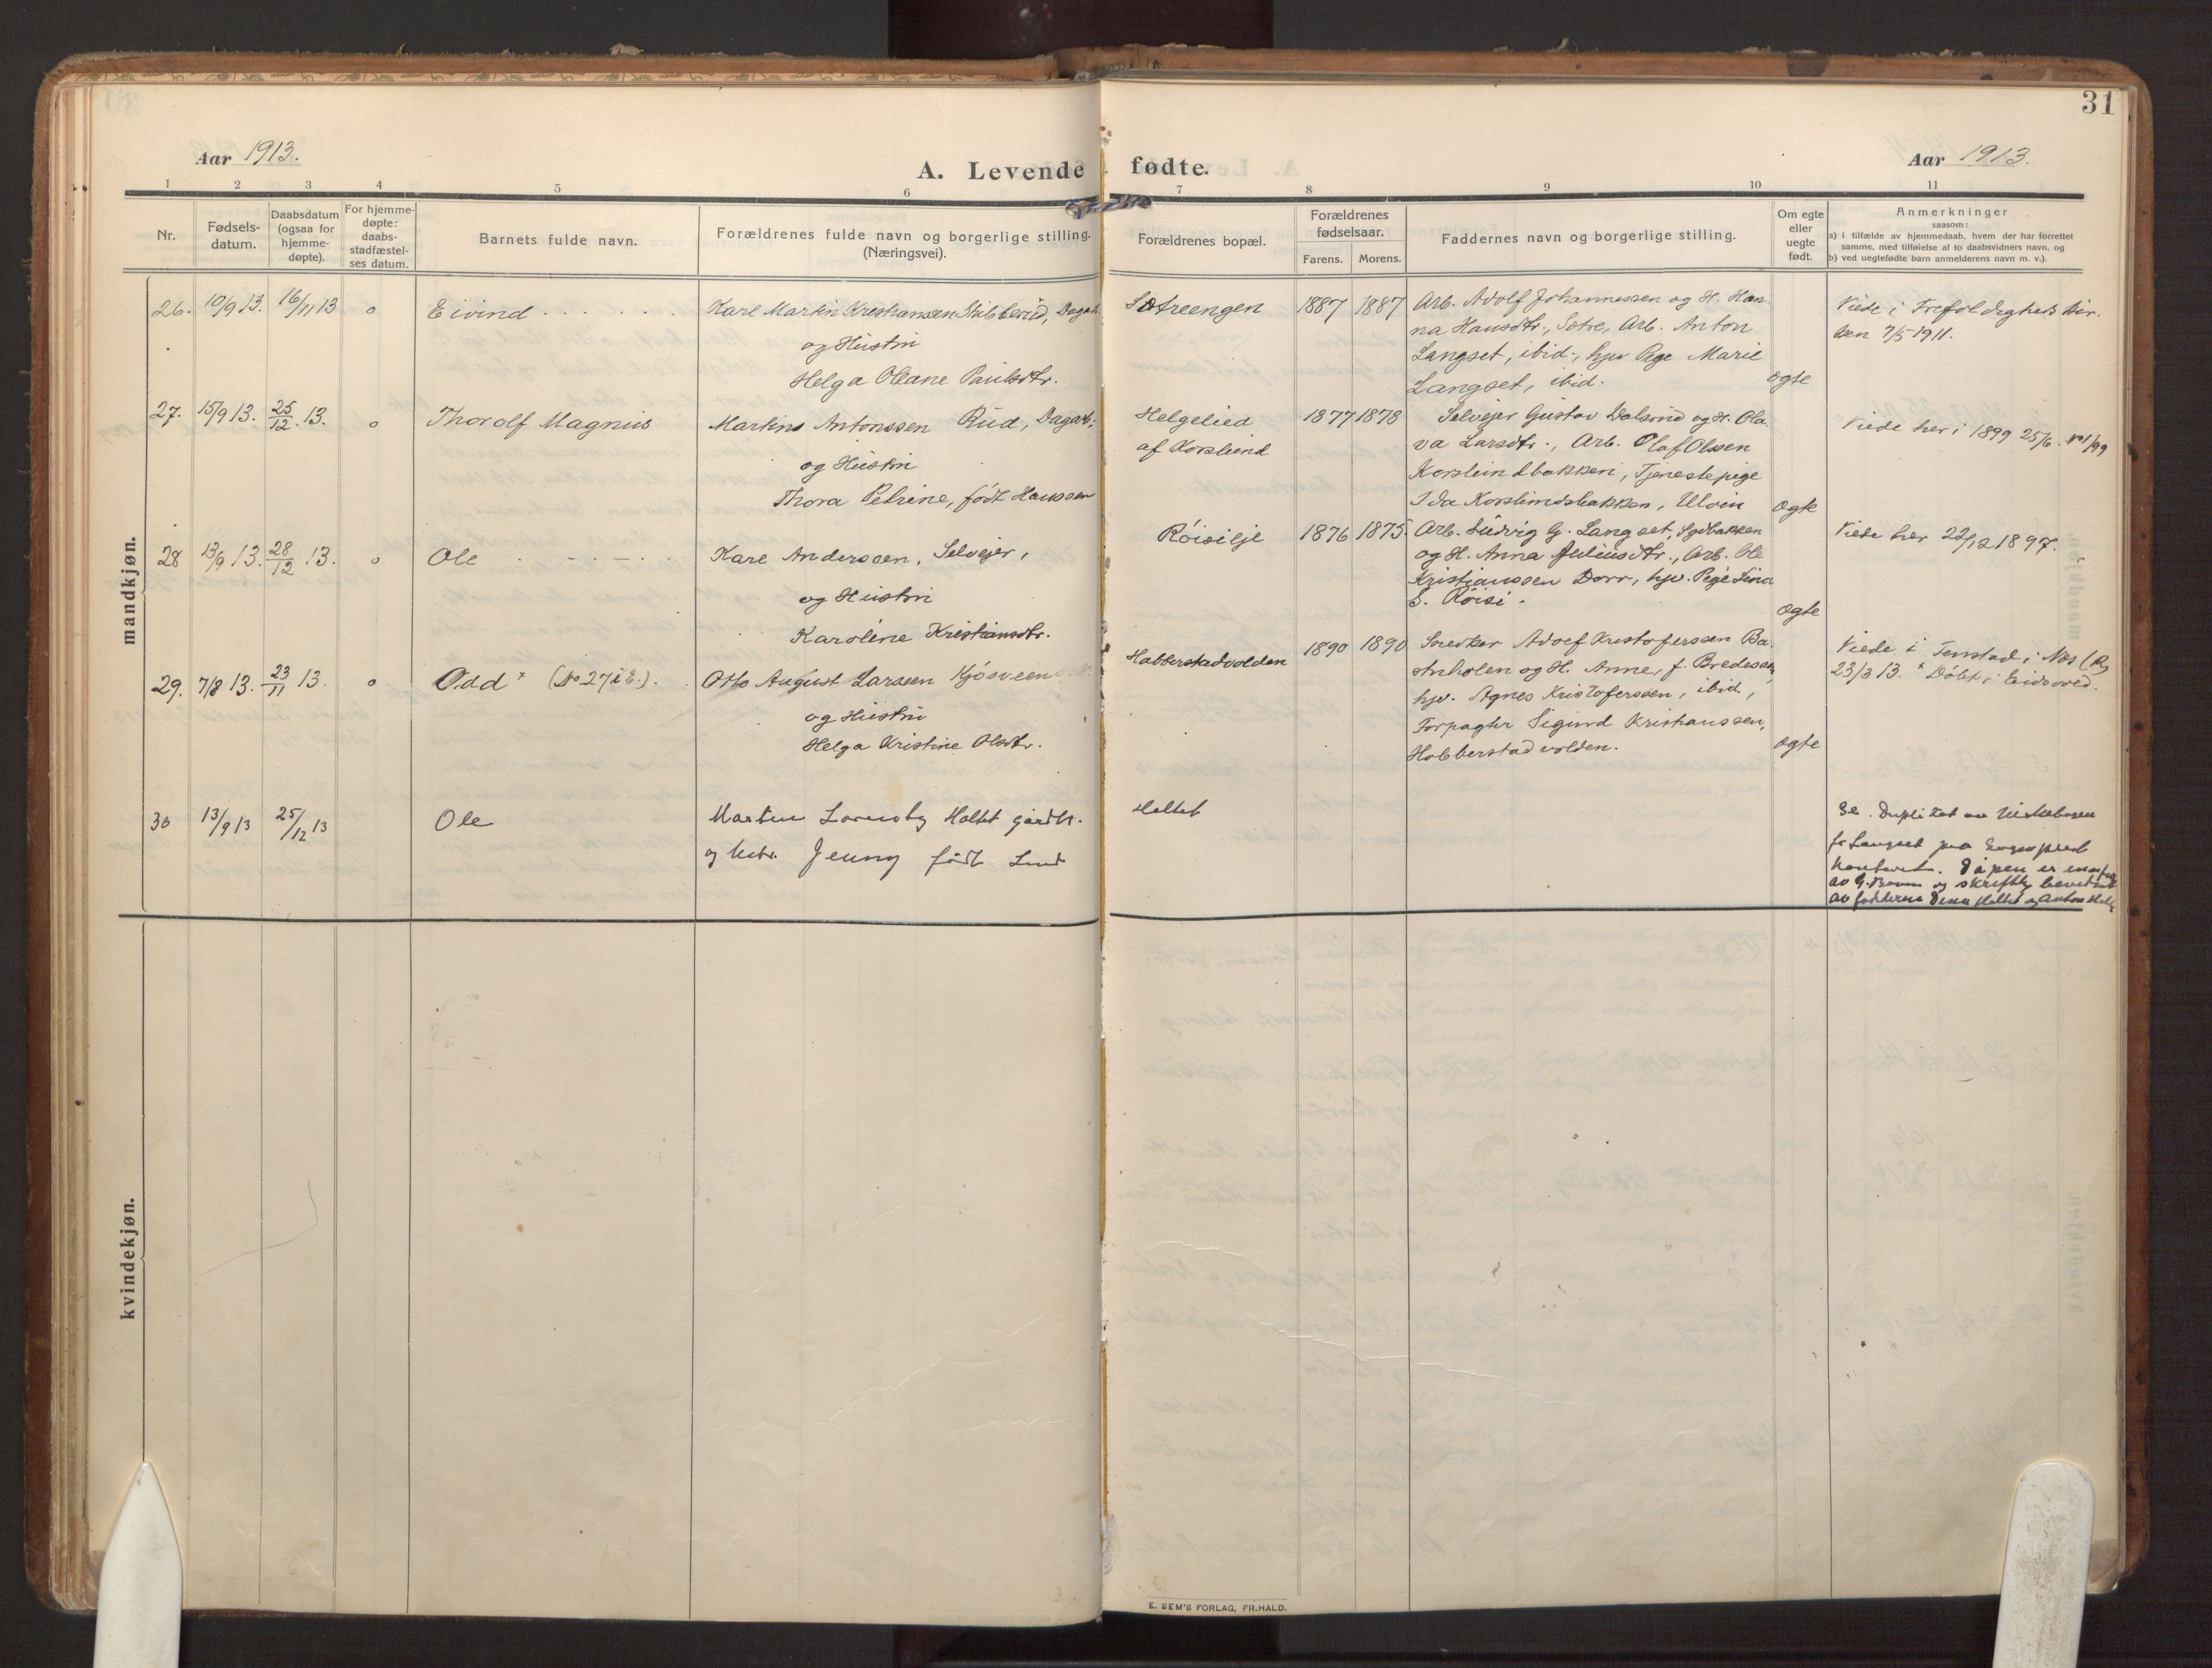 31
Aar 1913.
A. Levende fødte.
Aar 1913.
1 2 3 4 5 6 7 8 9 10 11
Nr.
Fødsels-
datum.
Daabsdatum
(ogsaa for
hjemme-
døpte).
For hjemme-
døpte:
daabs-
stadfæstel-
ses datum.
Barnets fulde navn.
Forældrenes fulde navn og borgerlige stilling.
(Næringsvei).
Forældrenes bopæl.
Forældrenes
fødselsaar.
Farens. Morens.
Faddernes navn og borgerlige stilling.
Om egte
eller
uegte
født.
Anmerkninger
saasom:
a) i tilfælde av hjemmedaab, hvem der har forrettet
samme, med tilføielse af to daabsvidners navn, og
b) ved uegtefødte barn anmelderens navn m. v.).
mandkjøn.
26. 10/9 13. 16/11 13 o Eivind
Karl Martin Kristiansen Stubberud, Dagarb.
og Hustru
Helga Oleane Paulsdtr.
Sætreengen 1887 1887
Arb. Adolf Johannessen og H. Han-
na Hansdtr., Sætre, Arb. Anton
Langset, ibid., hjv Pige Marie
Langset, ibid.
ægte
Viede i Trefoldigheds kir-
ken 7/5 1911.
27. 15/9 13. 25/12. 13. o Thorolf Magnus
Martins Antonssen Rud, Dagarb.;
og Hustru
Thora Petrine, født Hanssen
Helgelied
af Korslund
1877 1878
Selvejer Gustav Dalsrud og H. Ola-
va Larsdtr., Arb. Olaf Olssen
Korslundbakken, Tjenestepige
Ida Korslundsbakken, Ulvin
ægte
Viede her i 1899 25/6. No 1/99
28 13/9 13. 28/12 13. o Ole
Karl Anderssen, Selvejer,
og Hustru
Karoline Kristiansdtr.
Röisilje 1876 1875.
Arb. Ludvig G. Langset, Sydbakken
og H. Anna Juliusdtr., Arb. Ole
Kristianssen Dorr, hjv. Pige Lina
S. Röisi.
ægte
Viede her 22/12 1897.
29. 7/8 13. 23/11 13. o Odd * (No 27 i E.).
Otto August Larssen Kjösveen
og Hustru
Helga Kristine Olsdtr.
Habberstadvolden 1890 1890
Snedker Adolf Kristoferssen Ba-
stuholen og H. Anne, f. Bredesen,
hjv. Agnes Kristoferssen, ibid,
Forpagter Sigurd Kristianssen,
Habberstadvolden.
ægte
Viede i Tenstad i Nes (R)
23/3 13. * Döbt i Eidsvold.
30 13/9 13 25/12 13 Ole
Martin Lorentz Holtet gårdbr.
og hustr. Jenny født Lund
Holtet
Se. Duplikat av Klokkeboken
for Langset paa
kontoret. Dåpen er
av G. og skriftlig bevitnet
av fadderne Holtet og Anton
kvindekjøn.
E. SEM'S FORLAG, FR.HALD.